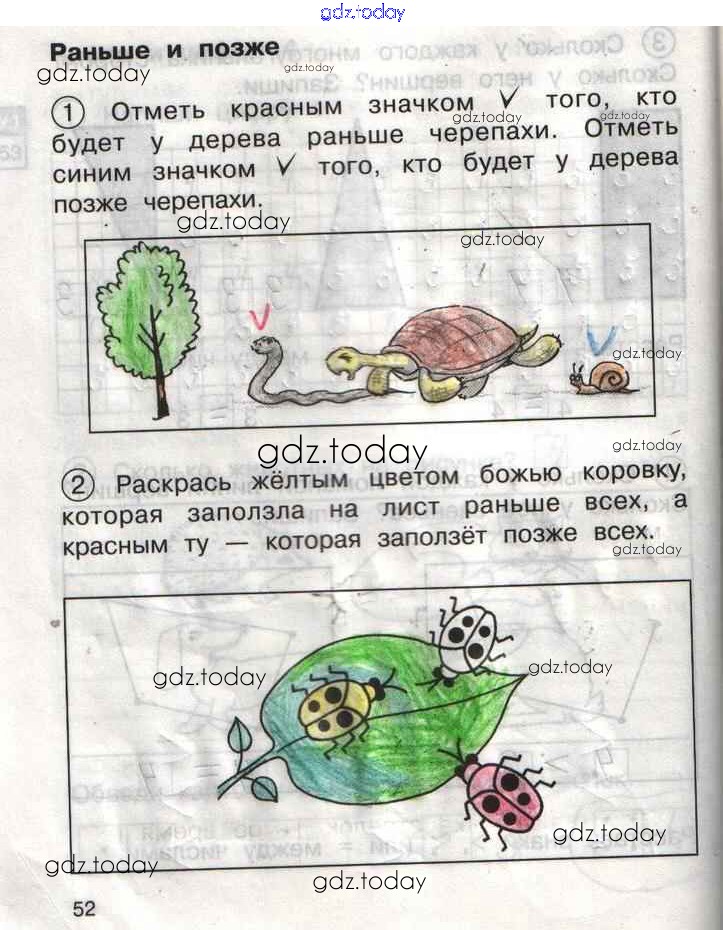 gdz.today
Раньше и позже
gdz.today
gdz.today
1 Отметь красным значком V того, кто
gdz.today
gdz.today
будет у дерева раньше черепахи. Отметь
синим значком V того, кто будет у дерева
позже черепахи.
gdz.today
gdz.today
V
V
gdz.today
gdz.today
gdz.today
2 Раскрась жёлтым цветом божью коровку,
которая заползла на лист раньше всех, а
красным ту — которая заползёт позже всех.
gdz.today
gdz.today
gdz.today
gdz.today
gdz.today
gdz.today
52